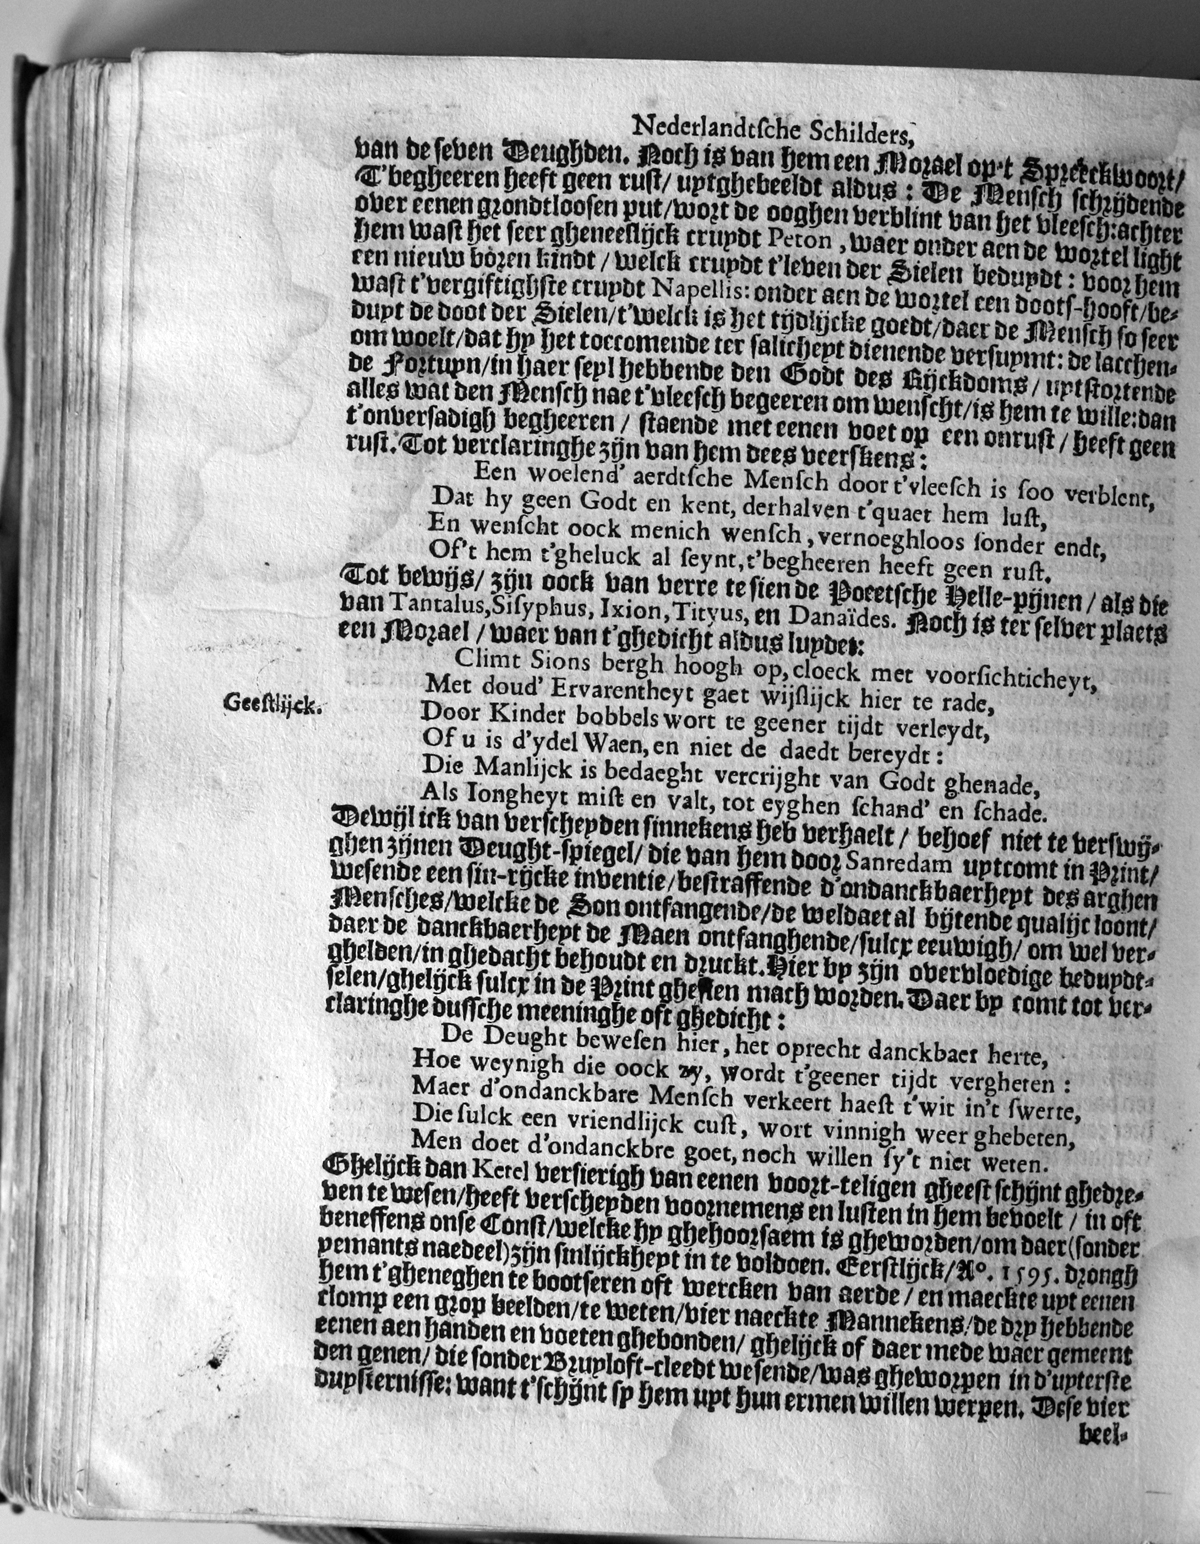 Nederlandtsche Schilders,
van de seven Deughden. Noch is van hem een Morael op't Spreeckwoort/
T'begheeren heeft geen rust/ uytghebeeldt aldus: De Mensch schrijdende
over eenen grondtloosen put/wort de ooghen verblint van het vleesch:achter
hem wast het seer gheneeslijck cruydt Peton, waer onder aen de wortel light
een nieuw boren kindt/ welck cruydt t'leven der Sielen beduydt: voor hem
wast t'vergiftighste cruydt Napellis: onder aen de wortel een doots-hooft/be-
duyt de doot der Sielen/t'welck is het tijdlijcke goedt/daer de Mensch so seer
om woelt/dat hy het toecomende ter salicheyt dienende versuymt: de lacchen-
de Fortuyn/in haer seyl hebbende den Godt des Rijckdoms/ uytstortende
alles wat den Mensch nae t'vleesch begeeren om wenscht/is hem te wille:dan
t'onversadigh begheeren/ staende met eenen voet op een onrust/ heeft geen
rust. Tot verclaringhe zijn van hem dees veerskens:
Een woelend' aerdtsche Mensch door t'vleesch is soo verblent,
Dat hy geen Godt en kent, derhalven t'quaet hem lust,
En wenscht oock menich wensch, vernoeghloos sonder endt,
Of't hem t'gheluck al seynt, t'begheeren heeft geen rust.
Tot bewijs/ zijn oock van verre te sien de Poeetsche Helle-pijnen/ als die
van Tantalus, Sisyphus, Ixion, Tityus, en Danaïdes. Noch is ter selver plaets
een Morael/ waer van t'ghedicht aldus luydet:
Climt Sions bergh hoogh op, cloeck met voorsichticheyt,
Met doud' Ervarentheyt gaet wijslijck hier te rade,
Geestlijck.
Door Kinder bobbels wort te geener tijdt verleydt,
Of u is d'ydel Waen, en niet de daedt bereydt:
Die Manlijck is bedaeght vercrijght van Godt ghenade,
Als Iongheyt mist en valt, tot eyghen schand' en schade.
Dewijl ick van verscheyden sinnekens heb verhaelt/ behoef niet te verswij-
ghen zijnen Deught-spiegel/ die van hem door Sanredam uytcomt in Print/
wesende een sin-rijcke inventie/bestraffende d'ondanckbaerheyt des arghen
Mensches/welcke de Son ontfangende/de weldaet al bijtende qualijc loont/
daer de danckbaerheyt de Maen ontfanghende/sulcx eeuwigh/ om wel ver-
ghelden/in ghedacht behoudt en druckt. Hier by zijn overvloedige beduydt-
selen/ghelijck sulcx in de Print ghesien mach worden. Daer by comt tot ver-
claringhe dussche meeninghe oft ghedicht:
De Deught bewesen hier, het oprecht danckbaer herte,
Hoe weynigh die oock zy, wordt t'geener tijdt vergheten:
Maer d'ondanckbare Mensch verkeert haest t'wit in't swerte,
Die sulck een vriendlijck cust, wort vinnigh weer ghebeten,
Men doet d'ondanckbre goet, noch willen sy't niet weten.
Ghelijck dan Ketel versierigh van eenen voort-teligen gheest schijnt ghedre-
ven te wesen/heeft verscheyden voornemens en lusten in hem bevoelt/ in oft
beneffens onse Const/welcke hy ghehoorsaem is gheworden/om daer(sonder
yemants naedeel)zijn sinlijckheyt in te voldoen. Eerstlijck/Aº. 1595. drongh
hem t'gheneghen te bootseren oft wercken van aerde/ en maeckte uyt eenen
clomp een groy beelden/te weten/vier naeckte Mannekens/de dry hebbende
eenen aen handen en voeten ghebonden/ ghelijck of daer mede waer gemeent
den genen/ die sonder Bruyloft-cleedt wesende/was gheworpen in d'uyterste
duysternisse: want t'schijnt sy hem uyt hun ermen willen werpen. Dese vier
beel-